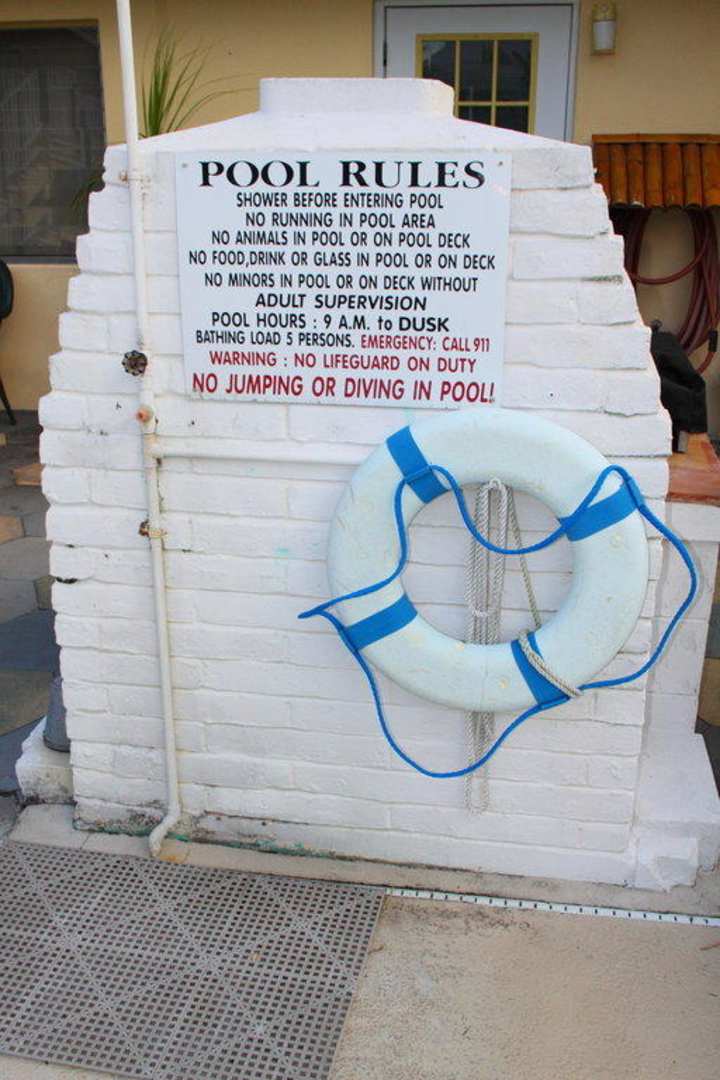 POOL RULES
SHOWER BEFORE ENTERING POOL
NO RUNNING IN POOL AREA
NO ANIMALS IN POOL OR ON POOL DECK
NO FOOD,DRINK OR GLASS IN POOL OR ON DECK
NO MINORS IN POOL OR ON DECK WITHOUT
ADULT SUPERVISION
POOL HOURS : 9 A.M. to DUSK
BATHING LOAD 5 PERSONS. EMERGENCY: CALL 911
WARNING : NO LIFEGUARD ON DUTY
NO JUMPING OR DIVING IN POOL!